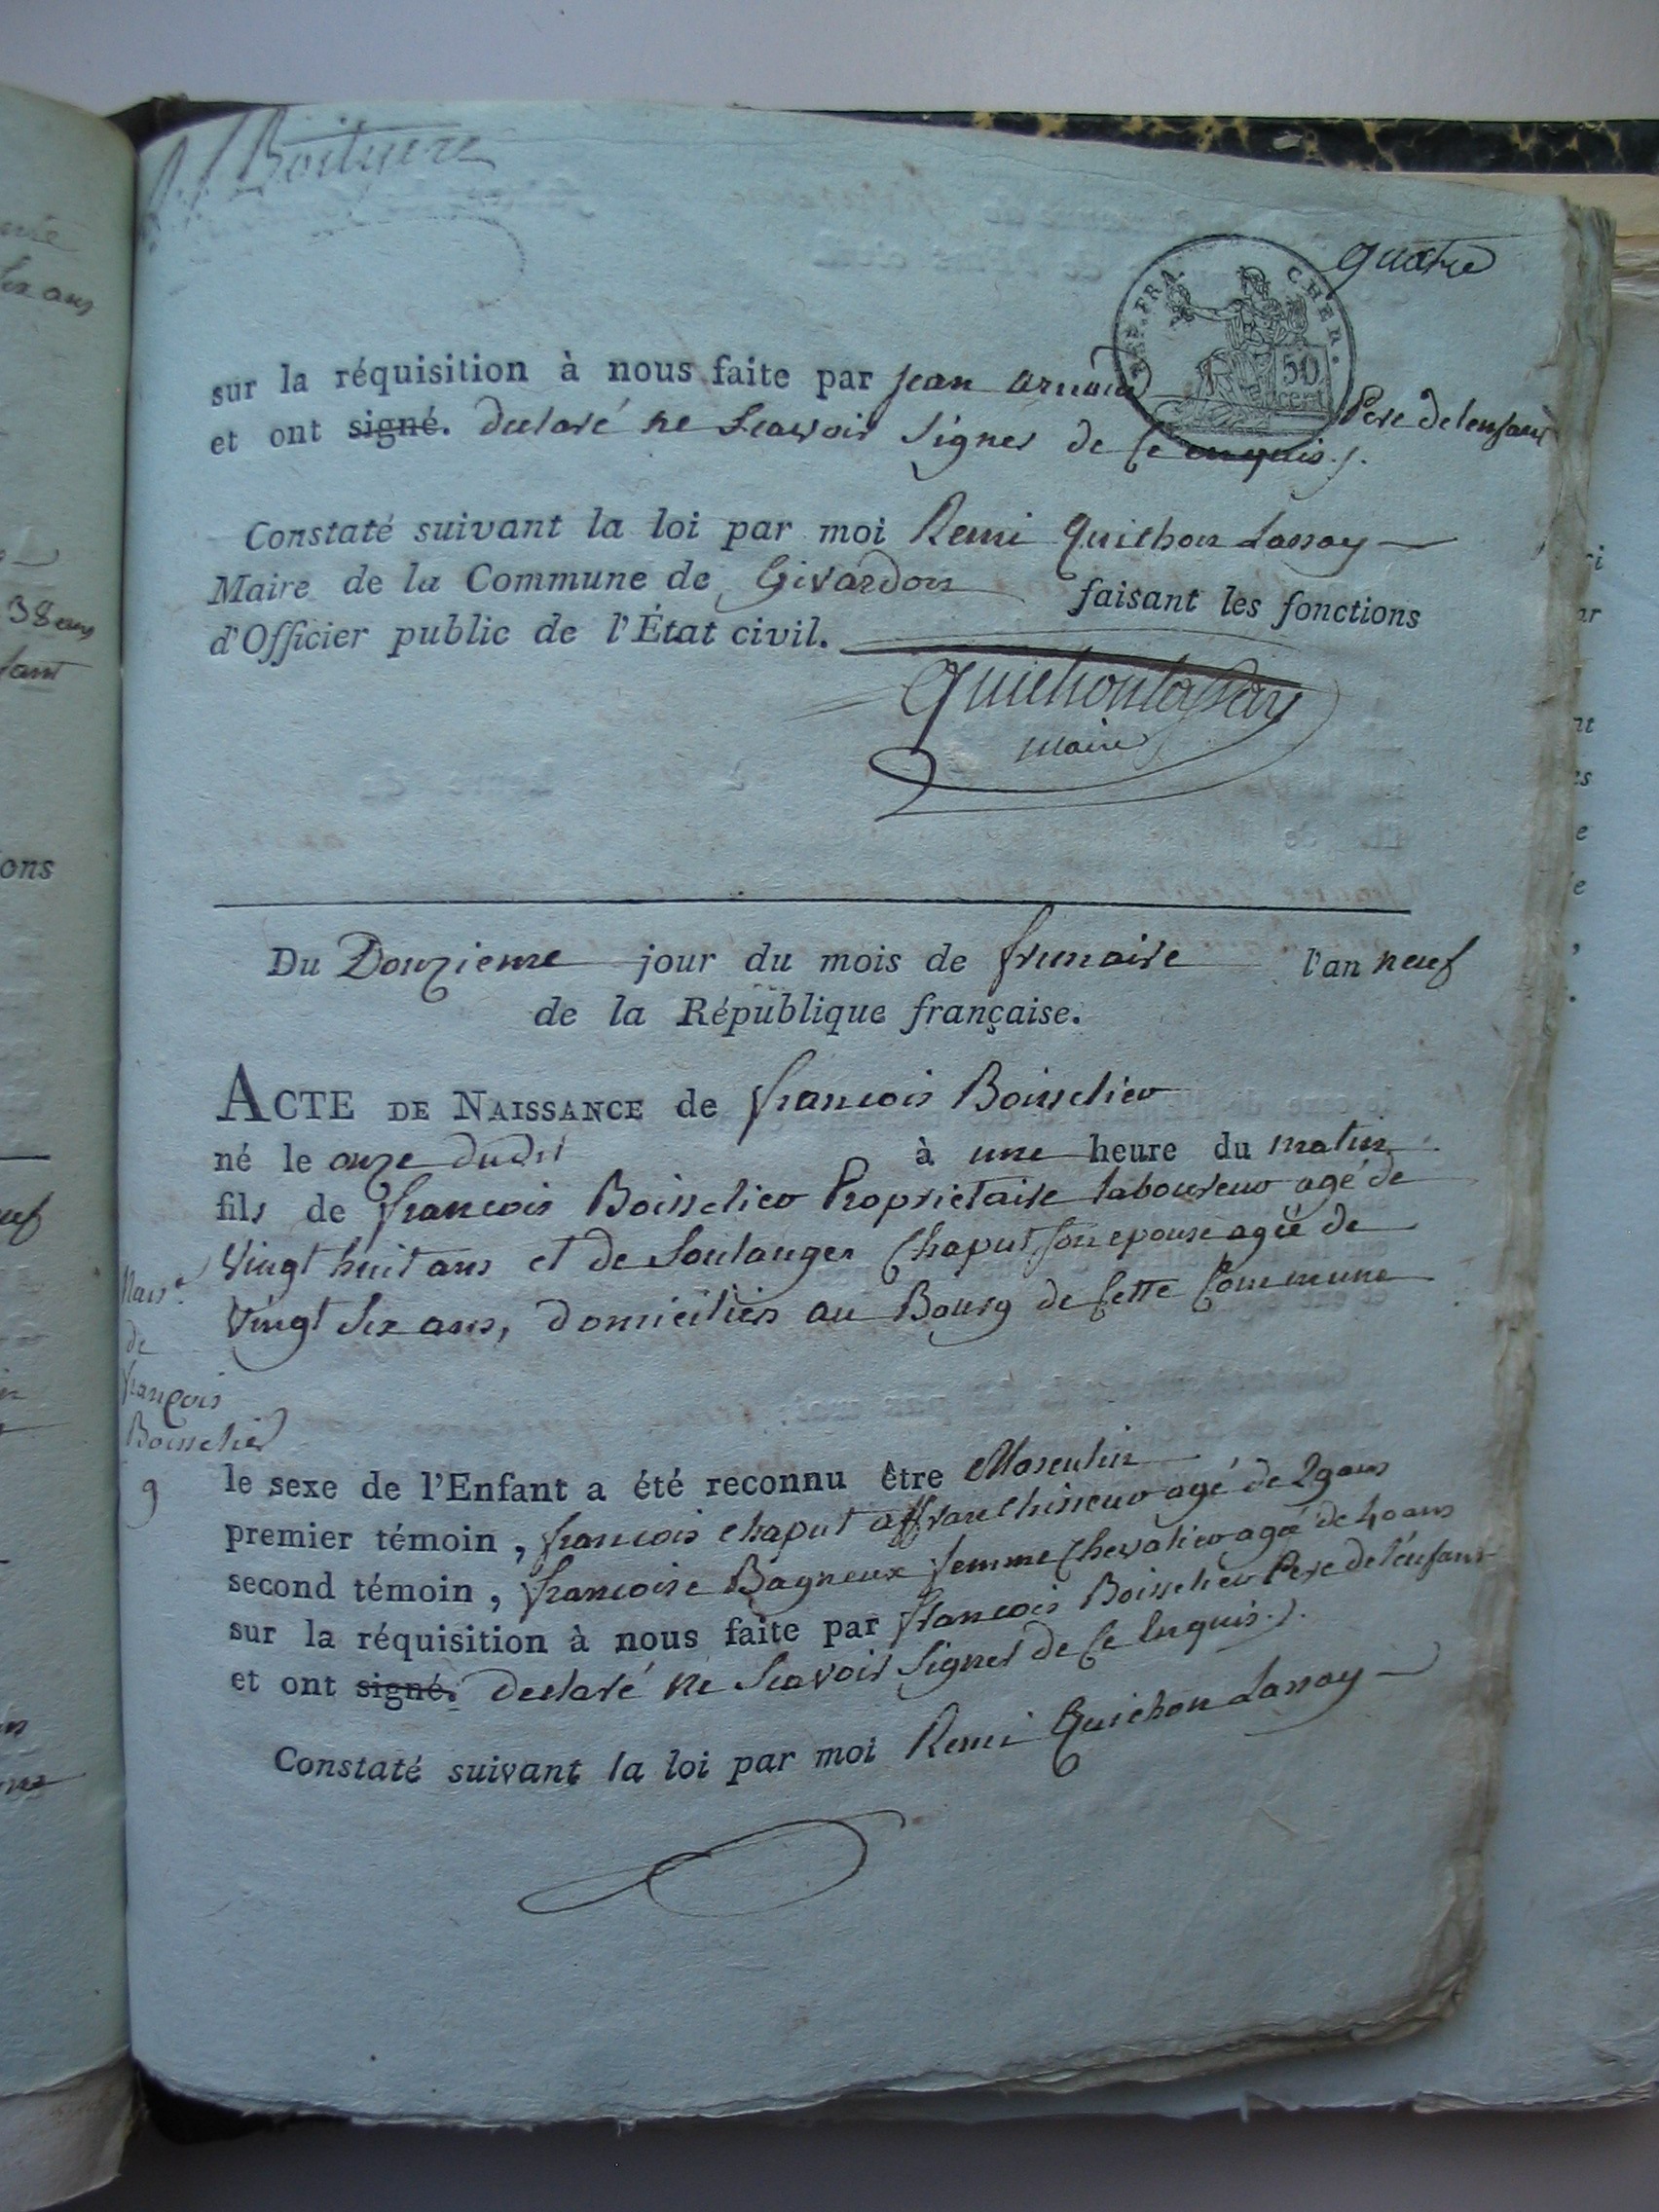 quatre
REP. FRA. CHER.
50 cent
sur la réquisition à nous faite par jean arnoud Pere de lenfant
et ont signé. declaré ne Scavoir Signer de Ce enquis ./.
Constaté suivant la loi par moi Remi Quichon Lassay
Maire de la Commune de Givardon faisant les fonctions
d'Officier public de l'État civil.
Quichonlassay
maire
Du Douzieme jour du mois de frimaire l'an neuf
de la République française.
ACTE DE NAISSANCE de francois Boisselier
né le onze dudit à une heure du matin
fils de francois Boisselier Proprietaire laboureur agé de
Vingt huit ans et de Soulange Chaput son epouse agée de
Vingt Six ans, domiciliés au Bourg de Cette Commune
Naisce
de
françois
Boisselier
9
le sexe de l'Enfant a été reconnu être Masculin
premier témoin, francois chaput affranchisseur agé de 29 ans
second témoin, francoise Bagneux femme Chevalier agée de 40 ans
sur la réquisition à nous faite par francois Boisselier Pere de l'enfant
et ont signé. declaré ne Scavoir Signer de Ce Enquis ./.
Constaté suivant la loi par moi Remi Quichon Lassay